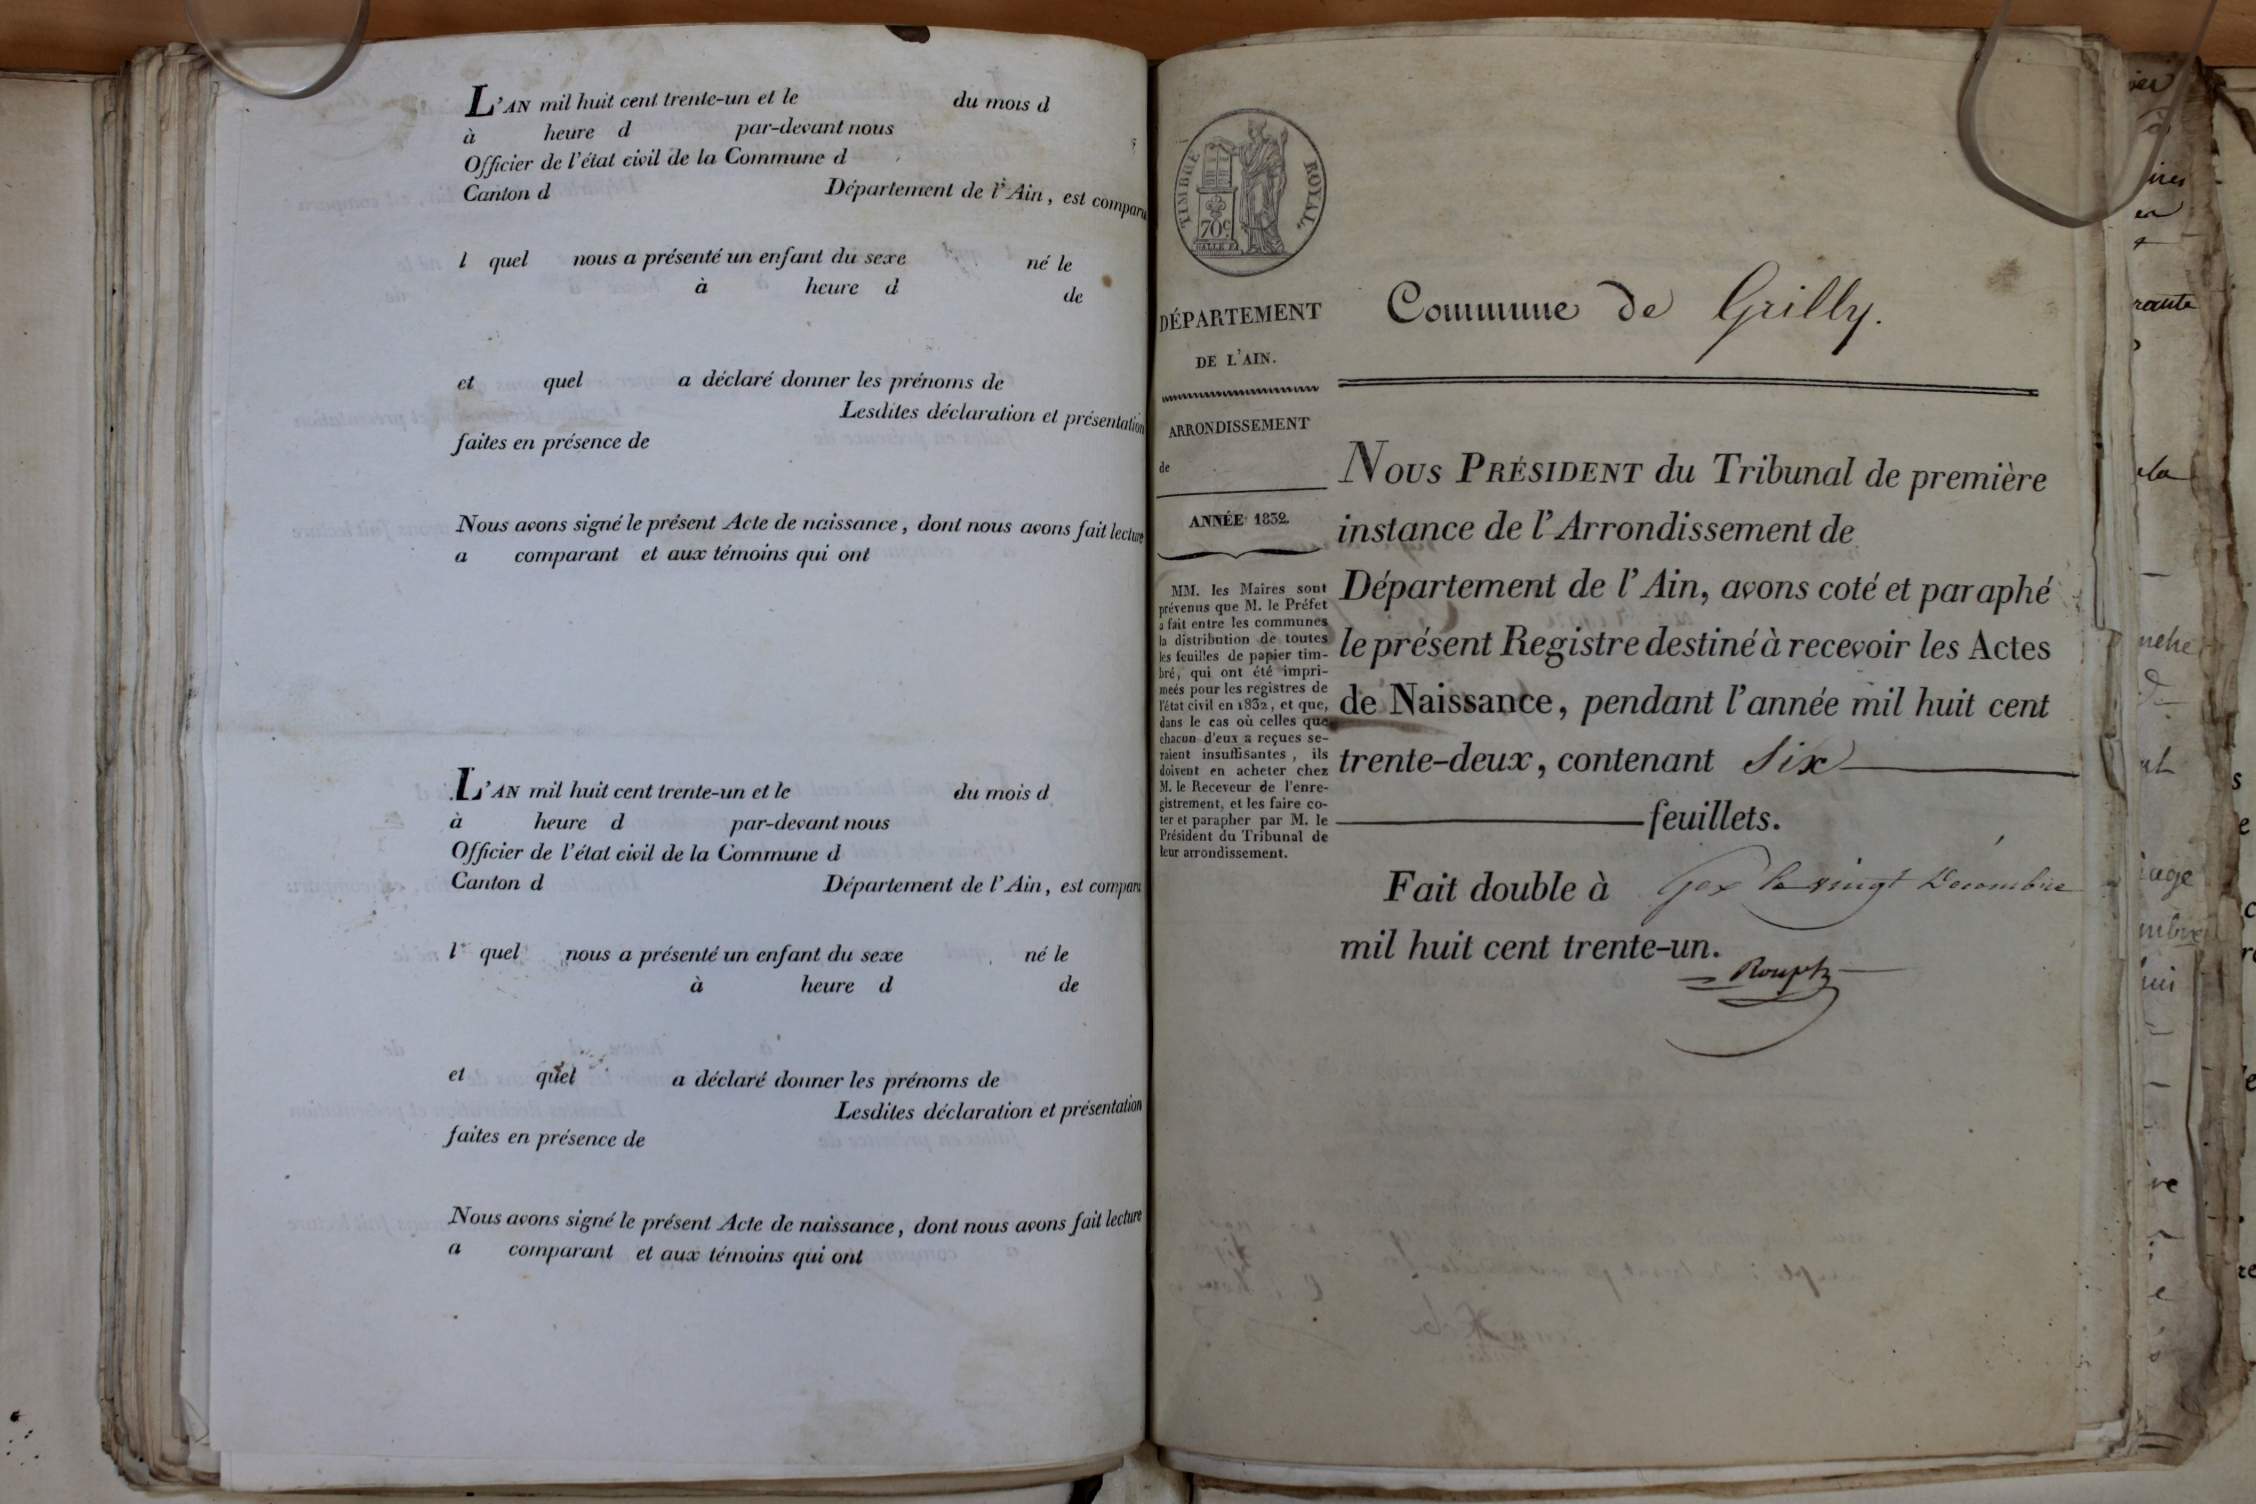 L'AN mil huit cent trente-un et le du mois d
à heure d par-devant nous
Officier de l'état civil de la Commune d
Canton d Département de l'Ain, est comparu
l quel nous a présenté un enfant du sexe né le
à heure d de
et quel a déclaré donner les prénoms de
Lesdites déclaration et présentation
faites en présence de
Nous avons signé le présent Acte de naissance, dont nous avons fait lecture
a comparant et aux témoins qui ont
L'AN mil huit cent trente-un et le du mois d
à heure d par-devant nous
Officier de l'état civil de la Commune d
Canton d Département de l'Ain, est comparu
l quel nous a présenté un enfant du sexe né le
à heure d de
et quel a déclaré donner les prénoms de
Lesdites déclaration et présentation
faites en présence de
Nous avons signé le présent Acte de naissance, dont nous avons fait lecture
a comparant et aux témoins qui ont
TIMBRE ROYAL
70c
DÉPARTEMENT
DE L'AIN.
ARRONDISSEMENT
de
ANNÉE 1832.
MM. les Maires sont
prévenus que M. le Préfet
a fait entre les communes
la distribution de toutes
les feuilles de papier tim-
bré, qui ont été impri-
meés pour les registres de
l'état civil en 1832, et que,
dans le cas où celles que
chacun d'eux a reçues se-
raient insuffisantes, ils
doivent en acheter chez
M. le Receveur de l'enre-
gistrement, et les faire co-
ter et parapher par M. le
Président du Tribunal de
leur arrondissement.
Commune de Grilly.
NOUS PRÉSIDENT du Tribunal de première
instance de l'Arrondissement de
Département de l'Ain, avons coté et paraphé
le présent Registre destiné à recevoir les Actes
de Naissance, pendant l'année mil huit cent
trente-deux, contenant Six
feuillets.
Fait double à Gex le vingt Décembre
mil huit cent trente-un.